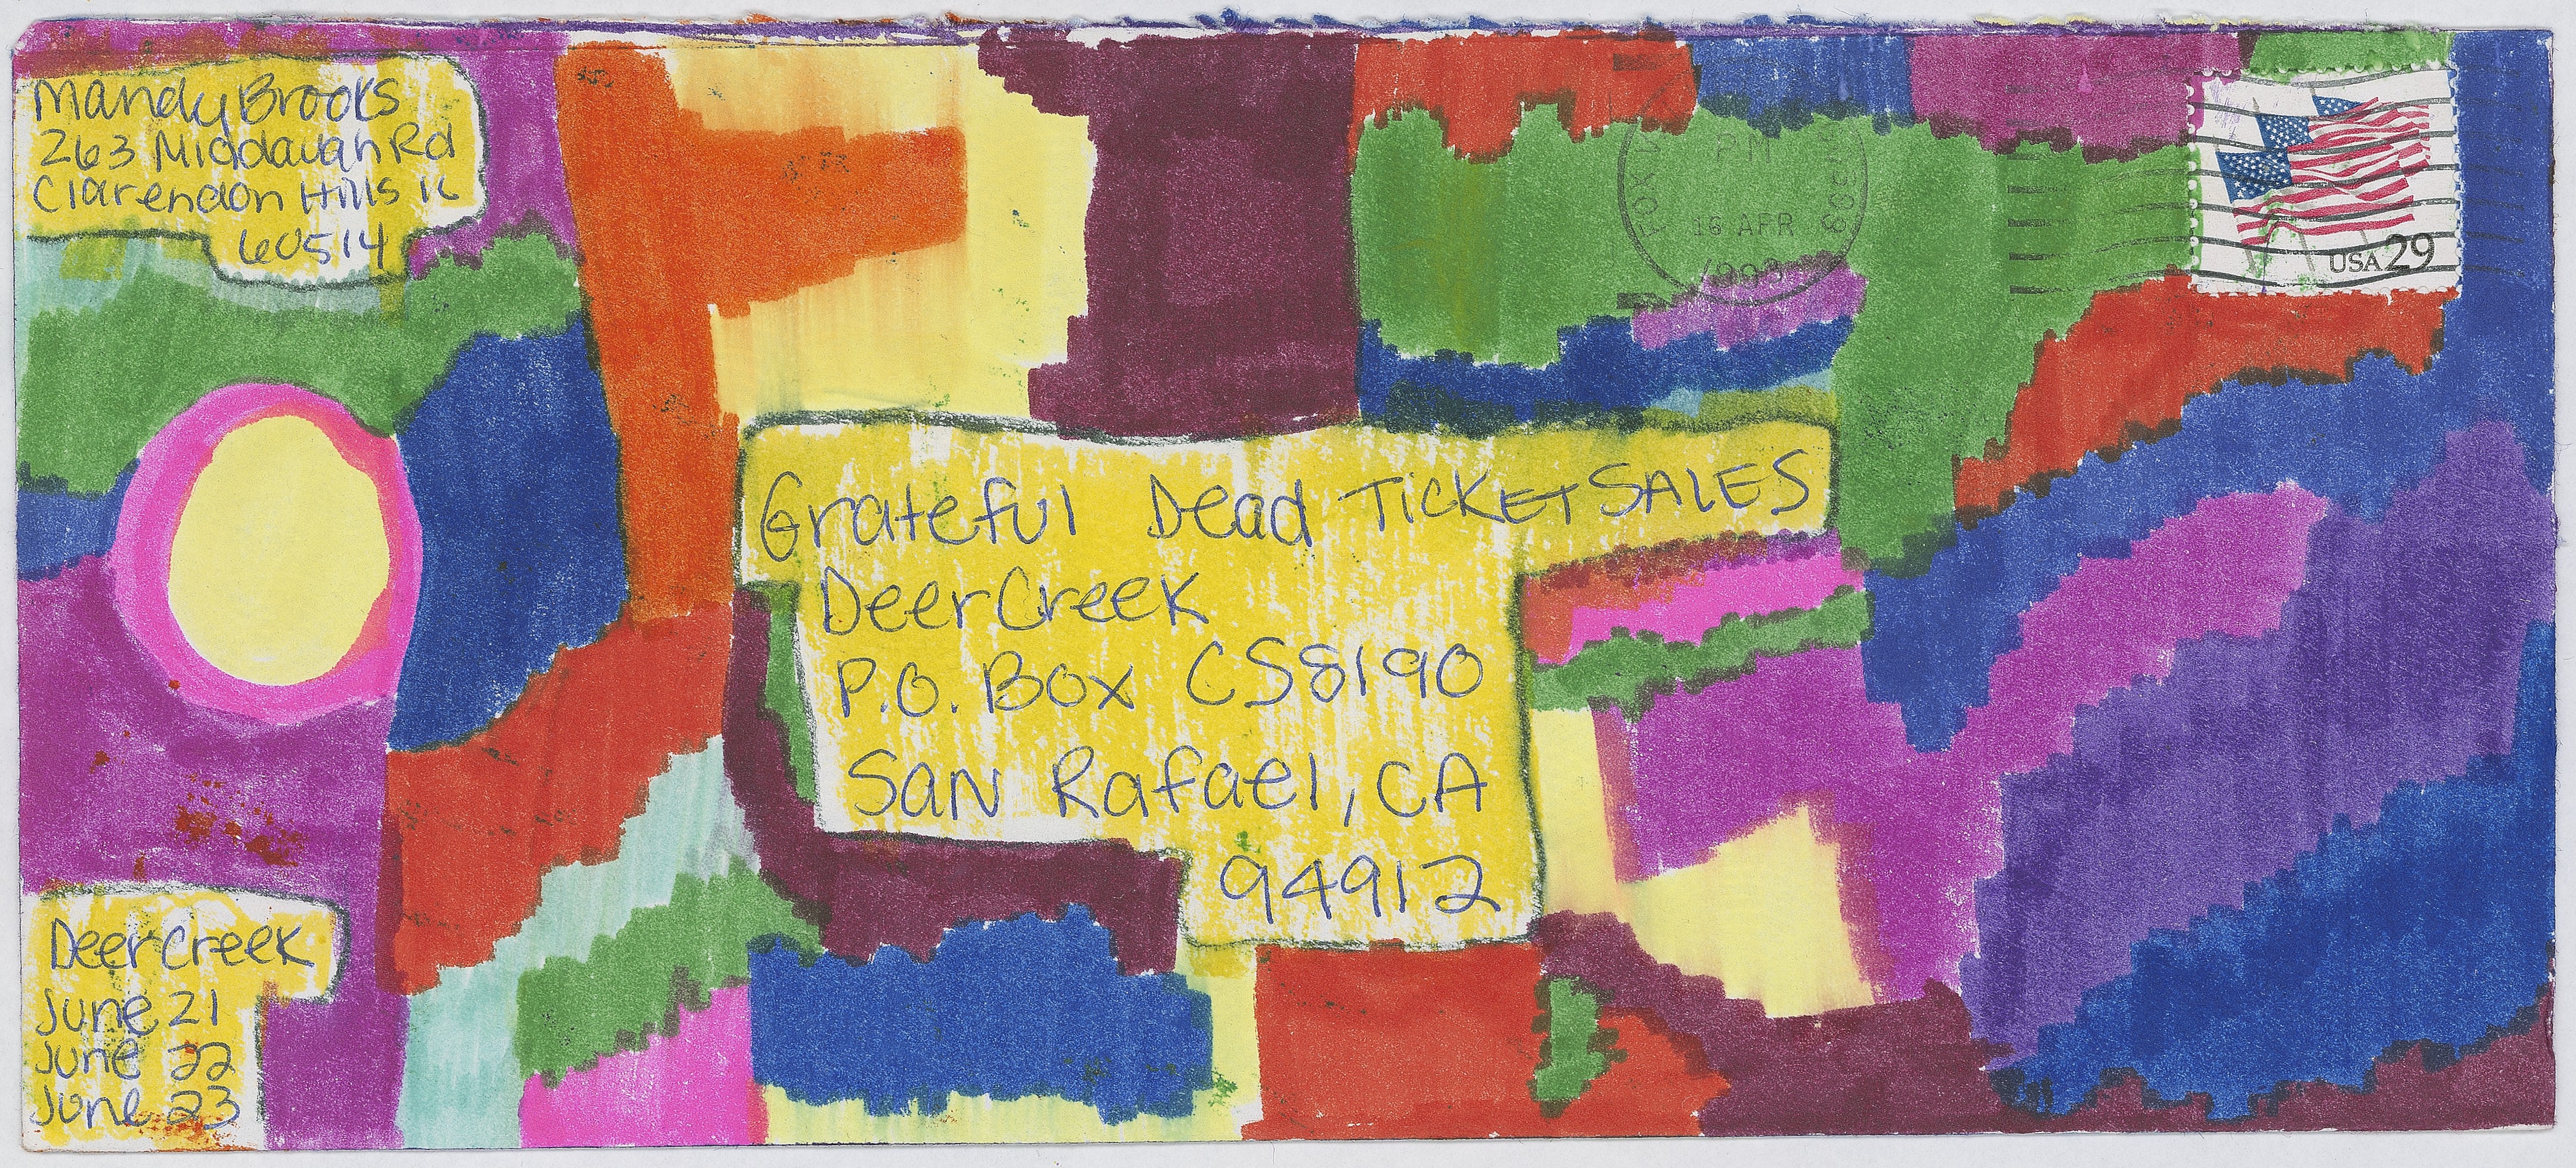 Mandy Brooks
263 Middaugh Rd
Clarendon Hills IL
60514
PM
16 APR
1993
USA 29
Grateful Dead TICKET SALES
Deer Creek
P.O. Box CS8190
SAN Rafael, CA
94912
Deer Creek
June 21
June 22
June 23